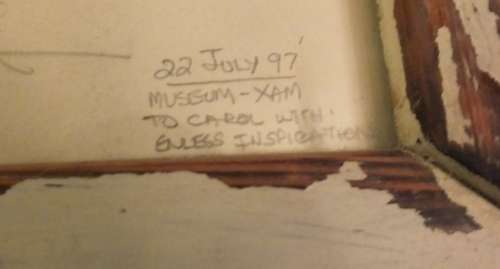 22 JULY 97'
MUSEUM - XAM
TO CAROL WITH
ENLESS INSPIRATION